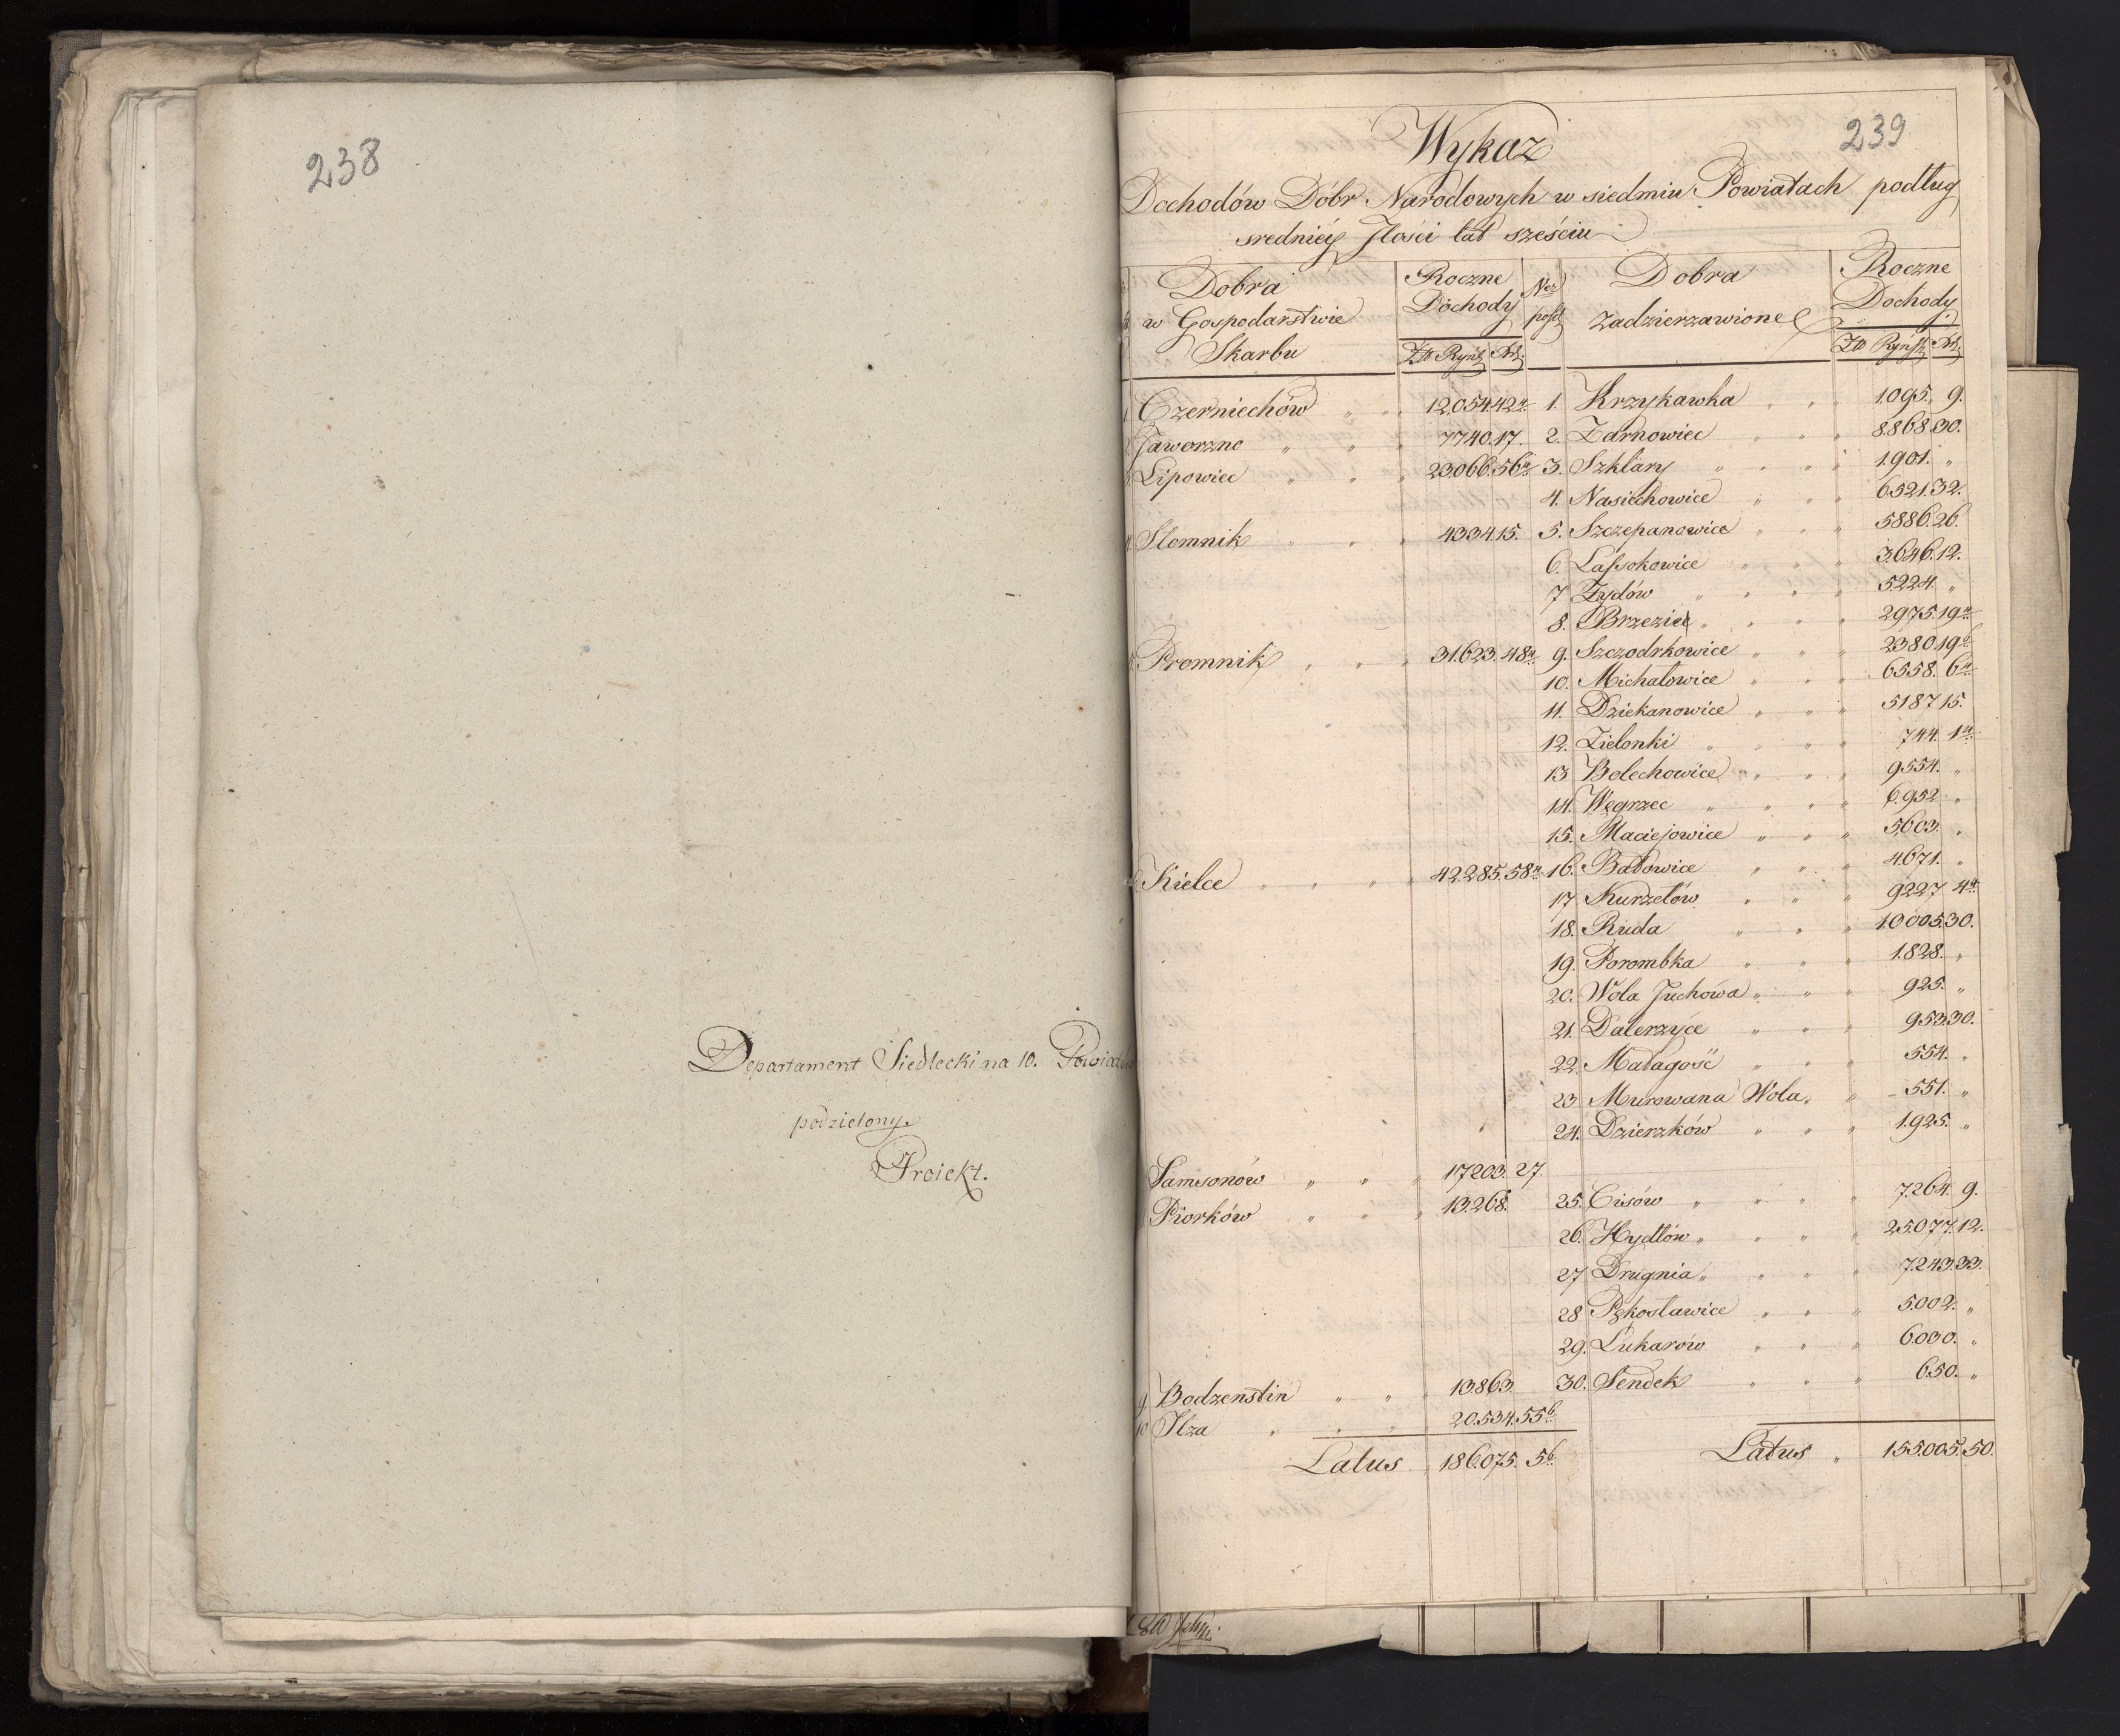 238
Departament Siedlecki na 10. Powiatów
podzielony.
Proiekt.
239
Wykaz
Dochodów Dóbr Narodowych w siedmiu Powiatach podług
sredniéy Jlości lat sześciu
Dobra w Gospodarstwie Skarbu | Roczne Dochody Zł Ryńs Xr. | Nro posit | Dobra zadzierzawione | Roczne Dochody Zł Ryńs Xr.
Czerniechów " " 12.054.42 4/. 1. Krzykawka " " " 1.095. 9.
Jaworzno " " " 7740.17. 2. Zarnowiec " " " 8.868.30.
Lipowiec " " " 23.066.56 4/. 3. Szklary " " " 1.901. "
4. Nasiechowice " " " 6.521.32.
Słomnik " " " 4334.15. 5. Szczepanowice " " " 5886.26.
6. Lassokowice " " " 3.646.12.
7 Zydów " " " " 5.224. "
8. Brzezie " " " " 2975.19 4/.
Promnik " " " 31.623.48 4/. 9. Szczodrkowice " " " 2.380.19 6/.
10. Michałowice " " " 6558. 6 4/.
11. Dziekanowice " " " 5187.15.
12. Zielonki " " " " 744. 1 4/.
13 Bolechowice " " " 9554. "
14. Węgrzec " " " " 6.952 "
15. Maciejowice " " " 5,603. "
Kielce " " " " 42.285.58 4/. 16. Batowice " " " 4.671. "
17 Kurzelów " " " 9227 4 4/.
18. Ruda " " " 10.005.30.
19. Porombka " " " 1.828. "
20. Wola Juchowa " " " 925. "
21. Dalerzyce " " " 953.30.
22. Małagość " " " 554. "
23 Murowana Wola " " 551. "
24. Dzierzków " " " 1.925. "
Samsonów " " " 17203. 27.
Piorków " " " 13.268. 25. Cisów " " " " 7.264. 9.
26. Hydłów " " " " 25.077.12.
27 Drugnia " " " " 7.243.33.
28 Pękosławice " " " 5.002. "
29. Lukarów " " " 6.030. "
9. Bodzenstin " " " 13.863. 30. Sendek " " " 650. "
10 Jlza " " " 20.534.55 6/.
Latus " 186.075. 5 6/. Latus " 155.005.50.